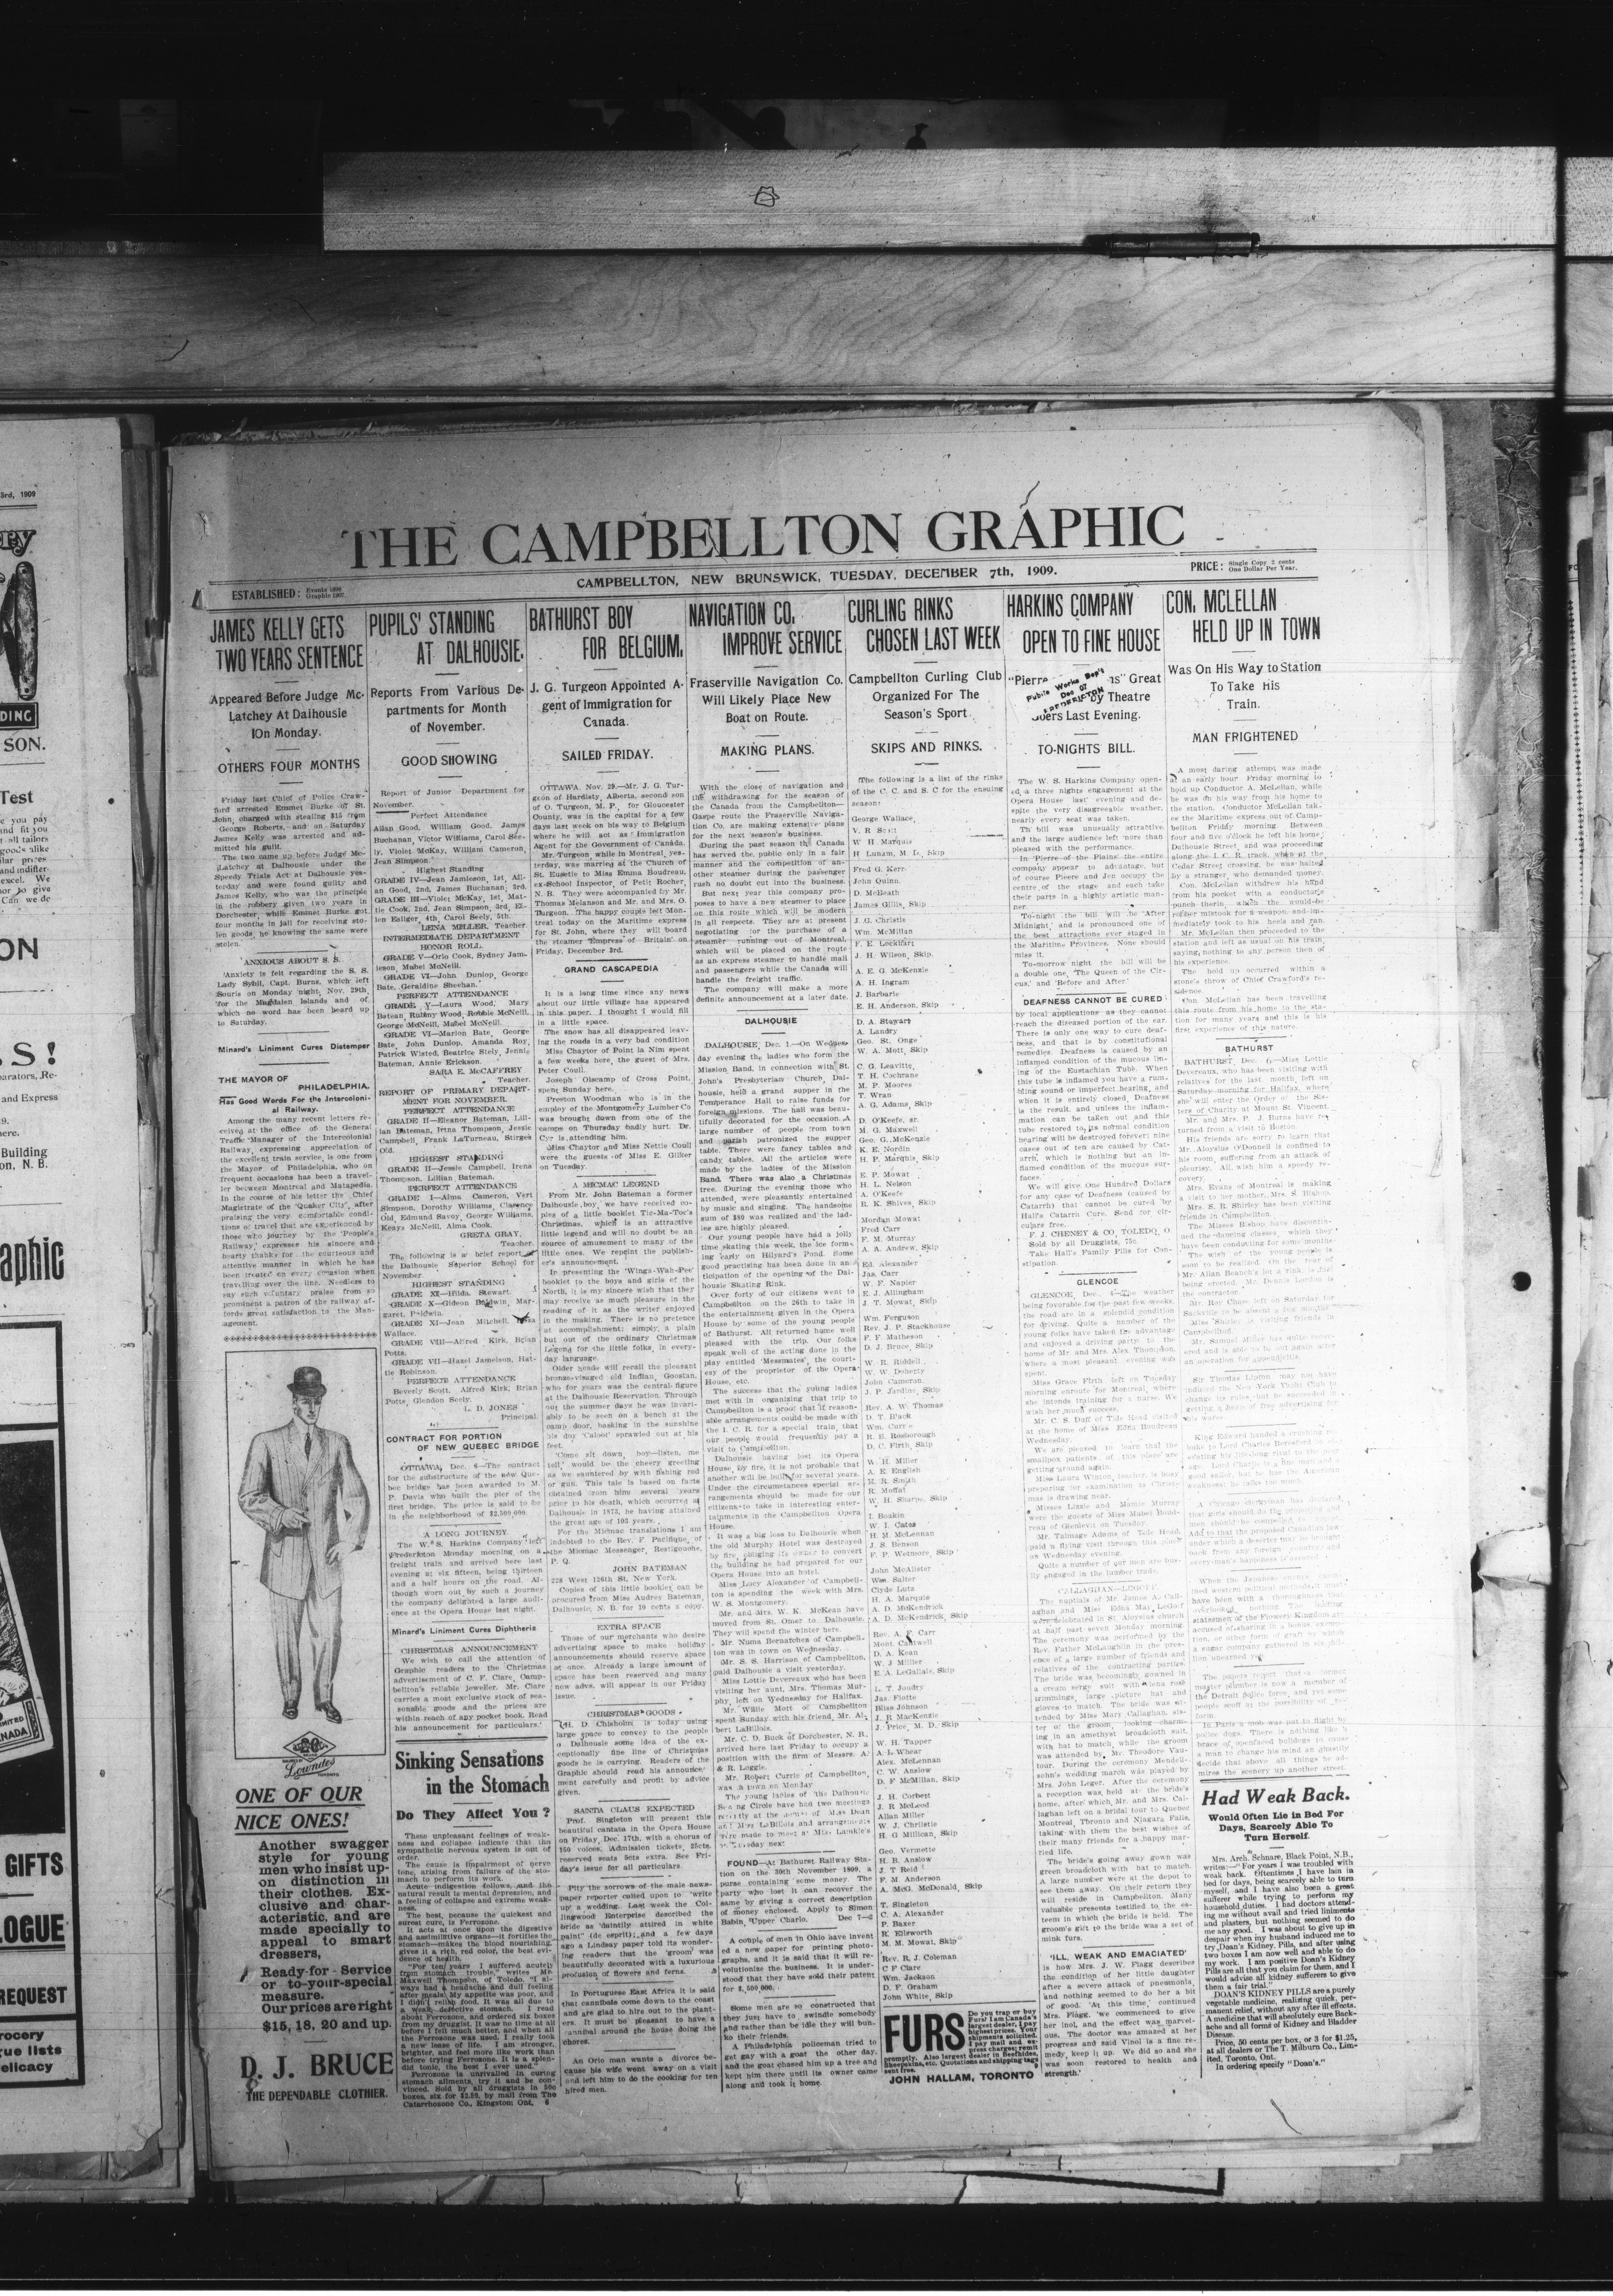 THE CAMPBELLTON GRAPHIC
ESTABLISHED: Events 1896
Graphic 1907
CAMPBELLTON, NEW BRUNSWICK, TUESDAY, DECEMBER 7th, 1909.
PRICE: Single Copy 2 cents
One Dollar Per Year.
JAMES KELLY GETS
TWO YEARS SENTENCE
Appeared Before Judge Mc-
Latchey At Dalhousie
On Monday.
OTHERS FOUR MONTHS
Friday last Chief of Police Craw-
ford arrested Emmet Burke of St.
John, charged with stealing $15 from
George Roberts, and on Saturday
James Kelly was arrested and ad-
mitted his guilt.
The two came up before Judge Mc-
Latchey at Dalhousie under the
Speedy Trials Act at Dalhousie yes-
terday and were found guilty and
James Kelly, who was the principle
in the robbery given two years in
Dorchester, while Emmet Burke got
four months in jail for receiving sto-
len goods, he knowing the same were
stolen.
ANXIOUS ABOUT S. S.
Anxiety is felt regarding the S. S.
Lady Sybil, Capt. Burns, which left
Souris on Monday night, Nov. 29th,
for the Magdalen Islands and of
which no word has been heard up
to Saturday.
Minard's Liniment Cures Distemper
THE MAYOR OF
PHILADELPHIA.
Has Good Words For the Intercoloni-
al Railway.
Among the many recent letters re-
ceived at the office of the General
Traffic Manager of the Intercolonial
Railway, expressing appreciation of
the excellent train service, is one from
the Mayor of Philadelphia, who on
frequent occasions has been a travel-
ler between Montreal and Matapedia.
In the course of his letter the Chief
Magistrate of the 'Quaker City', after
praising the very comfortable condi-
tions of travel that are experienced by
those who journey by the 'People's
Railway,' expresses his sincere and
hearty thanks for the courteous and
attentive manner in which he has
been treated on every occasion when
travelling over the line. Needless to
say such voluntary praise from so
prominent a patron of the railway af-
fords great satisfaction to the Man-
agement.
Lowndes
ONE OF OUR
NICE ONES!
Another swagger
style for young
men who insist up-
on distinction in
their clothes. Ex-
clusive and char-
acteristic, and are
made specially to
appeal to smart
dressers,
Ready-for-Service
or to-your-special
measure.
Our prices are right
$15, 18, 20 and up.
D. J. BRUCE
THE DEPENDABLE CLOTHIER.
PUPILS' STANDING
AT DALHOUSIE.
Reports From Various De-
partments for Month
of November.
GOOD SHOWING
Report of Junior Department for
November.
Perfect Attendance
Allan Good, William Good, James
Buchanan, Victor Williams, Carol See-
ly, Violet McKay, William Cameron,
Jean Simpson.
Highest Standing
GRADE IV—Jean Jamieson, 1st, All-
an Good, 2nd, James Buchanan, 3rd.
GRADE III—Violet McKay, 1st, Mat-
tie Cook, 2nd, Jean Simpson, 3rd, El-
len Esliger, 4th, Carol Seely, 5th.
LENA MILLER, Teacher.
INTERMEDIATE DEPARTMENT
HONOR ROLL.
GRADE V—Orlo Cook, Sydney Jam-
ieson, Mabel McNeill.
GRADE VI—John Dunlop, George
Bate, Geraldine Sheehan.
PERFECT ATTENDANCE
GRADE V—Laura Wood, Mary
Robbie McNeill,
George McNeill, Mabel McNeill.
GRADE VI—Marion Bate, George
Bate, John Dunlop, Amanda Roy,
Patrick Wisted, Beatrice Stely, Jennie
Bateman, Annie Erickson.
SARA E. McCAFFREY
Teacher.
REPORT OF PRIMARY DEPART-
MENT FOR NOVEMBER.
PERFECT ATTENDANCE
GRADE II—Eleanor Bateman, Lill-
ian Bateman, Irena Thompson, Jessie
Campbell, Frank LaTurneau, Stirges
Old.
HIGHEST STANDING
GRADE II—Jessie Campbell, Irena
Thompson, Lillian Bateman.
PERFECT ATTENDANCE
GRADE I—Alma Cameron, Vert
Simpson, Dorothy Williams, Clarence
Old, Edmund Savoy, George Williams,
Keays McNeill, Alma Cook.
GRETA GRAY,
Teacher.
The following is a brief report of
the Dalhousie Superior School for
November
HIGHEST STANDING
GRADE XI—Hilda Stewart.
GRADE X—Gideon Baldwin, Mar-
garet Baldwin.
GRADE XI—Jean Mitchell,
Wallace.
GRADE VIII—Alfred Kirk, Brian
Potts.
GRADE VII—Hazel Jameison, Hat-
tie Robinson.
PERFECT ATTENDANCE
Beverly Scott, Alfred Kirk, Brian
Potts, Glendon Seely.
L. D. JONES
Principal.
CONTRACT FOR PORTION
OF NEW QUEBEC BRIDGE
OTTAWA, Dec. 6—The contract
for the substructure of the new Que-
bec bridge has been awarded to M.
P. Davis who built the pier of the
first bridge. The price is said to be
in the neighborhood of $2,500,000.
A LONG JOURNEY.
The W. S. Harkins Company left
Fredericton Monday morning on a
freight train and arrived here last
evening at six fifteen, being thirteen
and a half hours on the road. Al-
though worn out by such a journey
the company delighted a large audi-
ence at the Opera House last night.
Minard's Liniment Cures Diphtheria
CHRISTMAS ANNOUNCEMENT
We wish to call the attention of
Graphic readers to the Christmas
advertisement of C. F. Clare, Camp-
bellton's reliable jeweller. Mr. Clare
carries a most exclusive stock of sea-
sonable goods and the prices are
within reach of any pocket book. Read
his announcement for particulars.
Sinking Sensations
in the Stomach
Do They Affect You?
These unpleasant feelings of weak-
ness and collapse indicate that the
sympathetic nervous system is out of
order.
The cause is impairment of nerve
tone, arising from failure of the sto-
mach to perform its work.
Acute indigestion follows, and the
natural result is mental depression, and
a feeling of collapse and extreme weak-
ness.
The best, because the quickest and
surest cure, is Ferrozone.
It acts at once upon the digestive
and assimilative organs—it fortifies the
stomach—makes the blood nourishing,
gives it a rich, red color, the best evi-
dence of health.
"For ten years I suffered acutely
from stomach trouble," writes Mr.
Maxwell Thompson, of Toledo. "I al-
ways had a headache and dull feeling
after meals. My appetite was poor, and
I didn't relish food. It was all due to
a weak, defective stomach. I read
about Ferrozone, and ordered six boxes
from my druggist. It was no time at all
before I felt much better, and when all
the Ferrozone was used. I really took
a new lease of life. I am stronger,
brighter, and feel more like work than
before trying Ferrozone. It is a splen-
did tonic, the best I ever used."
Ferrozone is unrivalled in curing
stomach ailments, try it and be con-
vinced. Sold by all druggists in 50c
boxes, six for $2.50, by mail from The
Catarrhozone Co., Kingston, Ont. 6
BATHURST BOY
FOR BELGIUM.
J. G. Turgeon Appointed A-
gent of Immigration for
Canada.
SAILED FRIDAY.
OTTAWA, Nov. 29.—Mr. J. G. Tur-
geon of Hardisty, Alberta, second son
of O. Turgeon, M. P., for Gloucester
County, was in the capital for a few
days last week on his way to Belgium
where he will act as Immigration
Agent for the Government of Canada.
Mr. Turgeon while in Montreal, yes-
terday, was married at the Church of
St. Eusetie to Miss Emma Boudreau,
ex-School Inspector, of Petit Rocher,
N. B. They were accompanied by Mr.
Thomas Melanson and Mr. and Mrs. O.
Turgeon. The happy couple left Mon-
treal today on the Maritime express
for St. John, where they will board
the steamer 'Empress of Britain' on
Friday, December 3rd.
GRAND CASCAPEDIA
It is a long time since any news
about our little village has appeared
in this paper. I thought I would fill
in a little space.
The snow has all disappeared leav-
ing the roads in a very bad condition
Miss Chaytor of Point la Nim spent
a few weeks here, the guest of Mrs.
Peter Coull.
Joseph Oiscamp of Cross Point,
spent Sunday here.
Preston Woodman who is in the
employ of the Montgomery Lumber Co
was brought down from one of the
camps on Thursday badly hurt. Dr.
Cyr is attending him.
Miss Chaytor and Miss Nettie Coull
were the guests of Miss E. Gilker
on Tuesday.
A MICMAC LEGEND
From Mr. John Bateman a former
Dalhousie boy, we have received co-
pies of a little booklet Tic-Ma-Toc's
Christmas, which is an attractive
little legend and will no doubt be an
source of amusement to many of the
little ones. We reprint the publish-
er's announcement.
In presenting the 'Winga-Wah-Pee'
booklet to the boys and girls of the
North, it is my sincere wish that they
may receive as much pleasure in the
reading of it as the writer enjoyed
in the making. There is no pretence
at accomplishment; simply, a plain
but out of the ordinary Christmas
Legend for the little folks, in every-
day language.
Older heads will recall the pleasant
bronze-visaged old Indian, Goostan,
who for years was the central figure
at the Dalhousie Reservation. Through
out the summer days he was invari-
ably to be seen on a bench at the
camp door, basking in the sunshine
his dog 'Caloot' sprawled out at his
feet.
'Come sit down, boy—listen, me
tell,' would be the cheery greeting
as we sauntered by with fishing rod
or gun. This tale is based on facts
obtained from him several years
prior to his death, which occurred at
Dalhousie in 1873, he having attained
the great age of 103 years.
For the Micmac translations I am
indebted to the Rev. F. Pacifique, of
the Micmac Messenger, Restigouche,
P. Q.
JOHN BATEMAN
228 West 126th St. New York.
Copies of this little booklet can be
procured from Miss Audrey Bateman,
Dalhousie, N. B. for 10 cents a copy.
EXTRA SPACE
Those of our merchants who desire
advertising space to make holiday
announcements should reserve space
at once. Already a large amount of
space has been reserved and many
new advs. will appear in our Friday
issue.
CHRISTMAS GOODS
H. D. Chisholm is today using
large space to convey to the people
o Dalhousie some idea of the ex-
ceptionally fine line of Christmas
goods he is carrying. Readers of the
Graphic should read his announce-
ment carefully and profit by advice
given.
SANTA CLAUS EXPECTED
Prof. Singleton will present this
beautiful cantata in the Opera House
on Friday, Dec. 17th, with a chorus of
150 voices. Admission tickets, 25cts.
reserved seats 5cts extra. See Fri-
day's issue for all particulars.
Pity the sorrows of the male news-
paper reporter called upon to 'write
up' a wedding. Last week the Col-
lingwood Enterprise described the
bride as 'daintily attired in white
paint' (de esprit); and a few days
ago a Lindsay paper told its wonder-
ing readers that the 'groom' was
beautifully decorated with a luxurious
profusion of flowers and ferns.
In Portuguese East Africa it is said
that cannibals come down to the coast
and are glad to hire out to the plant-
ers. It must be pleasant to have a
cannibal around the house doing the
chores.
An Orio man wants a divorce be-
cause his wife went away on a visit
and left him to do the cooking for ten
hired men.
NAVIGATION CO.
IMPROVE SERVICE
Fraserville Navigation Co.
Will Likely Place New
Boat on Route.
MAKING PLANS.
With the close of navigation and
the withdrawing for the season of
the Canada from the Campbellton-
Gaspe route the Fraserville Naviga-
tion Co. are making extensive plans
for the next season's business.
During the past season the Canada
has served the public only in a fair
manner and the competition of an-
other steamer during the passenger
rush no doubt cut into the business.
But next year this company pro-
poses to have a new steamer to place
on this route which will be modern
in all respects. They are at present
negotiating for the purchase of a
steamer running out of Montreal,
which will be placed on the route
as an express steamer to handle mail
and passengers while the Canada will
handle the freight traffic.
The company will make a more
definite announcement at a later date.
DALHOUSIE
DALHOUSIE, Dec. 1.—On Wednes-
day evening the ladies who form the
Mission Band, in connection with St.
John's Presbyterian Church, Dal-
housie, held a grand supper in the
Temperance Hall to raise funds for
foreign missions. The hall was beau-
tifully decorated for the occasion. A
large number of people from town
and parish patronized the supper
table. There were fancy tables and
candy tables. All the articles were
made by the ladies of the Mission
Band. There was also a Christmas
tree. During the evening those who
attended, were pleasantly entertained
by music and singing. The handsome
sum of $80 was realized and the lad-
ies are highly pleased.
Our young people have had a jolly
time skating this week, the ice form-
ing early on Hilyard's Pond. Some
good practising has been done in an-
ticipation of the opening of the Dal-
housie Skating Rink.
Over forty of our citizens went to
Campbellton on the 26th to take in
the entertainment given in the Opera
House by some of the young people
of Bathurst. All returned home well
pleased with the trip. Our folks
speak well of the acting done in the
play entitled 'Messmates', the court-
esy of the proprietor of the Opera
House, etc.
The success that the young ladies
met with in organizing that trip to
Campbellton is a proof that if reason-
able arrangements could be made with
the I. C. R. for a special train, that
our people would frequently pay a
visit to Campbellton.
Dalhousie having lost its Opera
House by fire, it is not probable that
another will be built for several years.
Under the circumstances special ar-
rangements should be made for our
citizens to take in interesting enter-
tainments in the Campbellton Opera
House.
It was a big loss to Dalhousie when
the old Murphy Hotel was destroyed
by fire, obliging its owner to convert
the building he had prepared for our
Opera House into an hotel.
Miss Lucy Alexander of Campbell-
ton is spending the week with Mrs.
W. S. Montgomery.
Mr. and Mrs. W. K. McKean have
moved from St. Omer to Dalhousie.
They will spend the winter here.
Mr. Numa Bernatchez of Campbell-
ton was in town on Wednesday.
Mr. S. S. Harrison of Campbellton,
paid Dalhousie a visit yesterday.
Miss Lottie Devereaux who has been
visiting her aunt, Mrs. Thomas Mur-
phy, left on Wednesday for Halifax.
Mr. Willie Mott of Campbellton
spent Sunday with his friend, Mr. Al-
bert LaBillois.
Mr. C. D. Buck of Dorchester, N. B.,
arrived here last Friday to occupy a
position with the firm of Messrs. A.
& R. Loggie.
Mr. Robert Currie of Campbellton,
was in town on Monday
The young ladies of the Dalhousie
Sewing Circle have had two meetings
recently at the homes of Miss Dean
and Miss LaBillois and arrangements
were made to meet at Miss
next
FOUND—At Bathurst Railway Sta-
tion on the 30th November 1809, a
purse containing some money. The
party who lost it can recover the
same by giving a correct description
of money enclosed. Apply to Simon
Babin, Upper Charlo. Dec 7—2
A couple of men in Ohio have invent
ed a new paper for printing photo-
graphs, and it is said that it will re-
volutionize the business. It is under-
stood that they have sold their patent
for $,500,000.
Some men are so constructed that
they just have to swindle somebody
and rather than be idle they will bun-
ko their friends.
A Philadelphia policeman tried to
get gay with a goat the other day,
and the goat chased him up a tree and
kept him there until its owner came
along and took it home.
CURLING RINKS
CHOSEN LAST WEEK
Campbellton Curling Club
Organized For The
Season's Sport
SKIPS AND RINKS.
The following is a list of the rinks
of the C. C. and S. C for the ensuing
season:
George Wallace,
V. R Scott
W H. Marquis
H Lunam, M. D., Skip
Fred G. Kerr.
John Quinn.
D. McBeath
James Gillis, Skip
J. C. Christie
Wm. McMillan
F. E. Lockhart
J. H. Wilson, Skip.
A. E. G. McKenzie
A. H. Ingram
J. Barbarie
E. H. Anderson, Skip
D. A. Stewart
A. Landry
Geo. St. Onge
W. A. Mott, Skip
C. G. Leavitte,
T. H. Cochrane
M. P. Moores
T. Wran
A. G. Adams, Skip
D. O'Keefe, sr.
M. G. Maxwell
Geo. G. McKenzie
K. E. Nordin
H. P. Marquis, Skip
E. P. Mowat
H. L. Nelson
A. O'Keefe
R. K. Shives, Skip
Mordan Mowat
Fred Carr
F. M. Murray
A. A. Andrew, Skip
Ed. Alexander
Jas. Carr
W. F. Napier
E. J. Allingham
J. T. Mowat, Skip
Wm. Ferguson
Rev. J. P. Stackhouse
F. F. Matheson
D. J. Bruce, Skip
W. R. Riddell
W. W. Doherty
John Cameron
J. P. Jardine, Skip
Rev. A. W. Thomas
D. T. Black
Wm. Currie
R. B. Rosborough
D. C. Firth, Skip
W. H. Miller
A. E. English
M. R. Smith
R. Moffat
W. H. Sharpe, Skip
I. Boakin
W. I. Cates
H. M. McLennan
J. S. Benson
F. P. Wetmore, Skip
John McAlister
Wm. Salter
Clyde Lutz
H. A. Marquis
A. D. McKendrick
A. D. McKendrick, Skip
Rev. A. F. Carr
Mont. Cantwell
D. A. Kean
W. J. Miller
E. A. LeGallais, Skip
L. T. Joudry
Jas. Flotte
Bliss Johnson
J. R MacKenzie
J. Price, M. D. Skip
W. H. Tapper
A. L. Whear
Alex. McLennan
C. W. Anslow
D. F McMillan, Skip
J. H. Corbest
J. R McLeod
Allan Miller
W. J. Christie
H. G Millican, Skip
Geo. Vermette
H. B. Anslow
J. T Reid
F. M. Anderson
A. McG. McDonald, Skip
T. Singleton
C. A. Alexander
P. Baxer
R Ellsworth
M. M. Mowat, Skip
Rev. R. J. Coleman
C F Clare
Wm. Jackson
D. F. Graham
John White, Skip
FURS
Do you trap or buy
Furs? I am Canada's
largest dealer, I pay
highest prices. Your
shipments solicited.
I pay mail and ex-
press charges; remit
promptly. Also largest dealer in Beefhides,
Sheepskins, etc. Quotations and shipping tags
sent free.
JOHN HALLAM, TORONTO
HARKINS COMPANY
OPEN TO FINE HOUSE
"Pierre
ns" Great
by Theatre
Goers Last Evening.
Public Works Dep't
Dec 07
FREDERICTON
TO-NIGHTS BILL.
The W. S. Harkins Company open-
ed a three nights engagement at the
Opera House last evening and de-
spite the very disagreeable weather,
nearly every seat was taken.
Th' bill was unusually attractive
and the large audience left more than
pleased with the performance.
In 'Pierre of the Plains' the entire
company appear to advantage, but
of course Pierre and Jen occupy the
centre of the stage and each take
their parts in a highly artistic man-
ner.
To-night the bill will be 'After
Midnight' and is pronounced one of
the best attractions ever staged in
the Maritime Provinces. None should
miss it.
To-morrow night the bill will be
a double one, 'The Queen of the Cir-
cus,' and 'Before and After.'
DEAFNESS CANNOT BE CURED
by local applications as they cannot
reach the diseased portion of the ear.
There is only one way to cure deaf-
ness, and that is by constitutional
remedies. Deafness is caused by an
inflamed condition of the mucous lin-
ing of the Eustachian Tube. When
this tube is inflamed you have a rum-
bling sound or imperfect hearing, and
when it is entirely closed, Deafness
is the result, and unless the inflam-
mation can be taken out and this
tube restored to its normal condition
hearing will be destroyed forever; nine
cases out of ten are caused by Cat-
arrh, which is nothing but an in-
flamed condition of the mucous sur-
faces.
We will give One Hundred Dollars
for any case of Deafness (caused by
Catarrh) that cannot be cured by
Hall's Catarrh Cure. Send for cir-
culars free.
F. J. CHENEY & CO, TOLEDO, O.
Sold by all Druggists, 75c.
Take Hall's Family Pills for Con-
stipation.
GLENCOE
GLENCOE, Dec. —The weather
being favorable for the past few weeks,
the road are in a splendid condition
for driving. Quite a number of the
young folks have taken the advantage
and enjoyed a driving party to the
home of Mr. and Mrs. Alex. Thompson,
where a most pleasant evening was
spent.
Miss Grace Firth left on Tuesday
morning enroute for Montreal, where
she intends training for a nurse. We
wish her much success.
Mr. C. S. Duff of Tide Head visited
at the home of Miss Edna Boudreau
Wednesday.
We are pleased to learn that the
smallpox patients of this place are
getting around again.
Miss Laura Winton, teacher, is busy
preparing for examination as Christ-
mas is drawing near.
Misses Lizzie and Mamie Murray
were the guests of Miss Mabel Boud-
reau of Glenlevit on Tuesday.
Mr. Talmage Adams of Tide Head,
paid a flying visit through this place
on Wednesday evening.
Quite a number of our men are bus-
ily engaged in the lumber trade.
CALLAGHAN—LEGOFF
The nuptials of Mr. James A. Call-
aghan and Miss Edna May LeGoff
were celebrated in St. Aloysius church
at half past seven Monday morning.
The ceremony was performed by the
Rev. Father McLaughlin in the pres-
ence of a large number of friends and
relatives of the contracting parties.
The bride was becomingly gowned in
a cream serge suit with alena rose
trimmings, large picture hat and
gloves to match. The bride was at-
tended by Miss Mary Callaghan, sis-
ter of the groom, looking charm-
ing in an amethyst broadcloth suit,
with hat to match, while the groom
was attended by Mr. Theodore Vau-
tour. During the ceremony Mendels-
sohn's wedding march was played by
Mrs. John Leger. After the ceremony
a reception was held at the bride's
home, after which Mr. and Mrs. Cal-
laghan left on a bridal tour to Quebec
Montreal, Toronto and Niagara Falls,
taking with them the best wishes of
their many friends for a happy mar-
ried life.
The bride's going away gown was
green broadcloth with hat to match.
A large number were at the depot to
see them away. On their return they
will reside in Campbellton. Many
valuable presents testified to the es-
teem in which the bride is held. The
groom's gift to the bride was a set of
mink furs.
'ILL, WEAK AND EMACIATED'
is how Mrs. J. W. Flagg describes
the condition of her little daughter
after a severe attack of pneumonia,
and nothing seemed to do her a bit
of good. 'At this time,' continued
Mrs. Flagg, 'we commenced to give
her inol, and the effect was marvel-
ous. The doctor was amazed at her
progress and said Vinol is a fine re-
medy, keep it up. We did so and she
was soon restored to health and
strength.'
CON. MCLELLAN
HELD UP IN TOWN
Was On His Way to Station
To Take His
Train.
MAN FRIGHTENED
A most daring attempt was made
at an early hour Friday morning to
hold up Conductor A. McLellan, while
he was on his way from his home to
the station. Conductor McLellan tak-
es the Maritime express out of Camp-
bellton Friday morning. Between
four and five o'clock he left his home
Dalhousie Street, and was proceeding
along the I. C. R. track, when at the
Cedar Street crossing, he was halted
by a stranger, who demanded money.
Con. McLellan withdrew his hand
from his pocket with a conductor's
punch therin, which the would-be
robber mistook for a weapon and im-
mediately took to his heels and ran.
Mr. McLellan then proceeded to the
station and left as usual on his train,
saying nothing to any person then of
his experience.
The hold up occurred within a
stone's throw of Chief Crawford's re-
sidence.
Con. McLellan has been travelling
this route from his home to the sta-
tion for many years and this is his
first experience of this nature.
BATHURST
BATHURST, Dec. 6—Miss Lottie
Devereaux, who has been visiting with
relatives for the last month, left on
Saturday morning for Halifax, where
she will enter the Order of the Sis-
ters of Charity at Mount St. Vincent.
Mr. and Mrs. P. J. Burns have re-
turned from a visit to Boston.
His friends are sorry to learn that
Mr. Aloysius O'Donnell is confined to
his room, suffering from an attack of
pleurisy. All wish him a speedy re-
covery.
Mrs. Evans of Montreal is making
a visit to her mother, Mrs. S. Bishop.
Mrs. S. R. Shirley has been visiting
friends in Campbellton.
The Misses Bishop have discontin-
ued the dancing classes, which they
have been conducting for some months
The wish of the young people is
soon to be realized. On the rear of
Mr. Allan Branch's lot a rink is
being erected. Mr. Dennis London is
the contractor.
Mr. Roy Chase left on Saturday for
Sackville to be absent a few months
Miss Shirley is visiting friends in
Campbellton.
Mr. Samuel Miller has quite recov-
ered and is able to be out again after
an operation for appendicitis.
Sir Thomas Lipton may not have
induced the New York Yacht Club to
change its rules, but he succeeded in
getting a heap of free advertising for
his wares.
King Edward handed a crushing re-
buke to Lord Charles Beresford
A Chicago clergyman has declared
that girls should do the proposing and
When the Japanese
The papers report that a former
master plumber is now a member of
the Detroit police force, and yet some
people scoff at the possibility of re-
form.
In Paris a mob was put to flight by
police dogs. There is nothing like a
brace of openfaced bulldogs to cause
a man to change his mind an instantly
decide that above all things he ad-
mires the scenery up another street.
Had Weak Back.
Would Often Lie in Bed For
Days, Scarcely Able To
Turn Herself.
Mrs. Arch. Schnare, Black Point, N.B.,
writes:—"For years I was troubled with
weak back. Oftentimes I have lain in
bed for days, being scarcely able to turn
myself, and I have also been a great
sufferer while trying to perform my
household duties. I had doctors attend-
ing me without avail and tried liniments
and plasters, but nothing seemed to do
me any good. I was about to give up in
despair when my husband induced me to
try Doan's Kidney Pills, and after using
two boxes I am now well and able to do
my work. I am positive Doan's Kidney
Pills are all that you claim for them, and I
would advise all kidney sufferers to give
them a fair trial."
DOAN'S KIDNEY PILLS are a purely
vegetable medicine, realizing quick, per-
manent relief, without any after ill effects.
A medicine that will absolutely cure Back-
ache and all forms of Kidney and Bladder
Disease.
Price, 50 cents per box, or 3 for $1.25,
at all dealers or The T. Milburn Co., Lim-
ited, Toronto, Ont.
In ordering specify "Doan's."
3rd, 1909
DING
SON.
Test
ON
S!
and Express
Building
on, N. B.
aphic
GIFTS
LOGUE
REQUEST
rocery
gue lists
elicacy